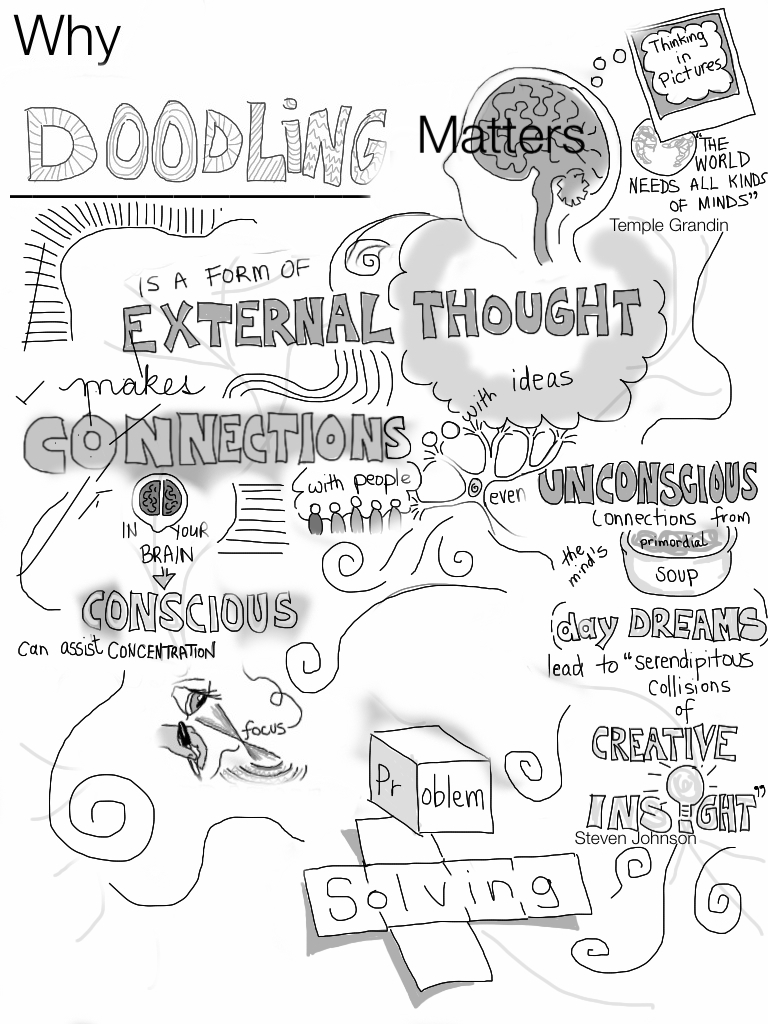 Why
DOODLiNG
Matters
Thinking
in
Pictures
"THE
WORLD
NEEDS ALL KINDS
OF MINDS"
Temple Grandin
IS A FORM OF
EXTERNAL THOUGHT
makes
CONNECTIONS
with ideas
with people
IN YOUR
BRAIN
CONSCIOUS
can assist CONCENTRATION
focus
even UNCONSCIOUS
Connections from
the
mind's
primordial
SOUP
(day DREAMS)
lead to "serendipitous
Collisions
of
CREATIVE
INSiGHT"
Steven Johnson
Problem
Solving